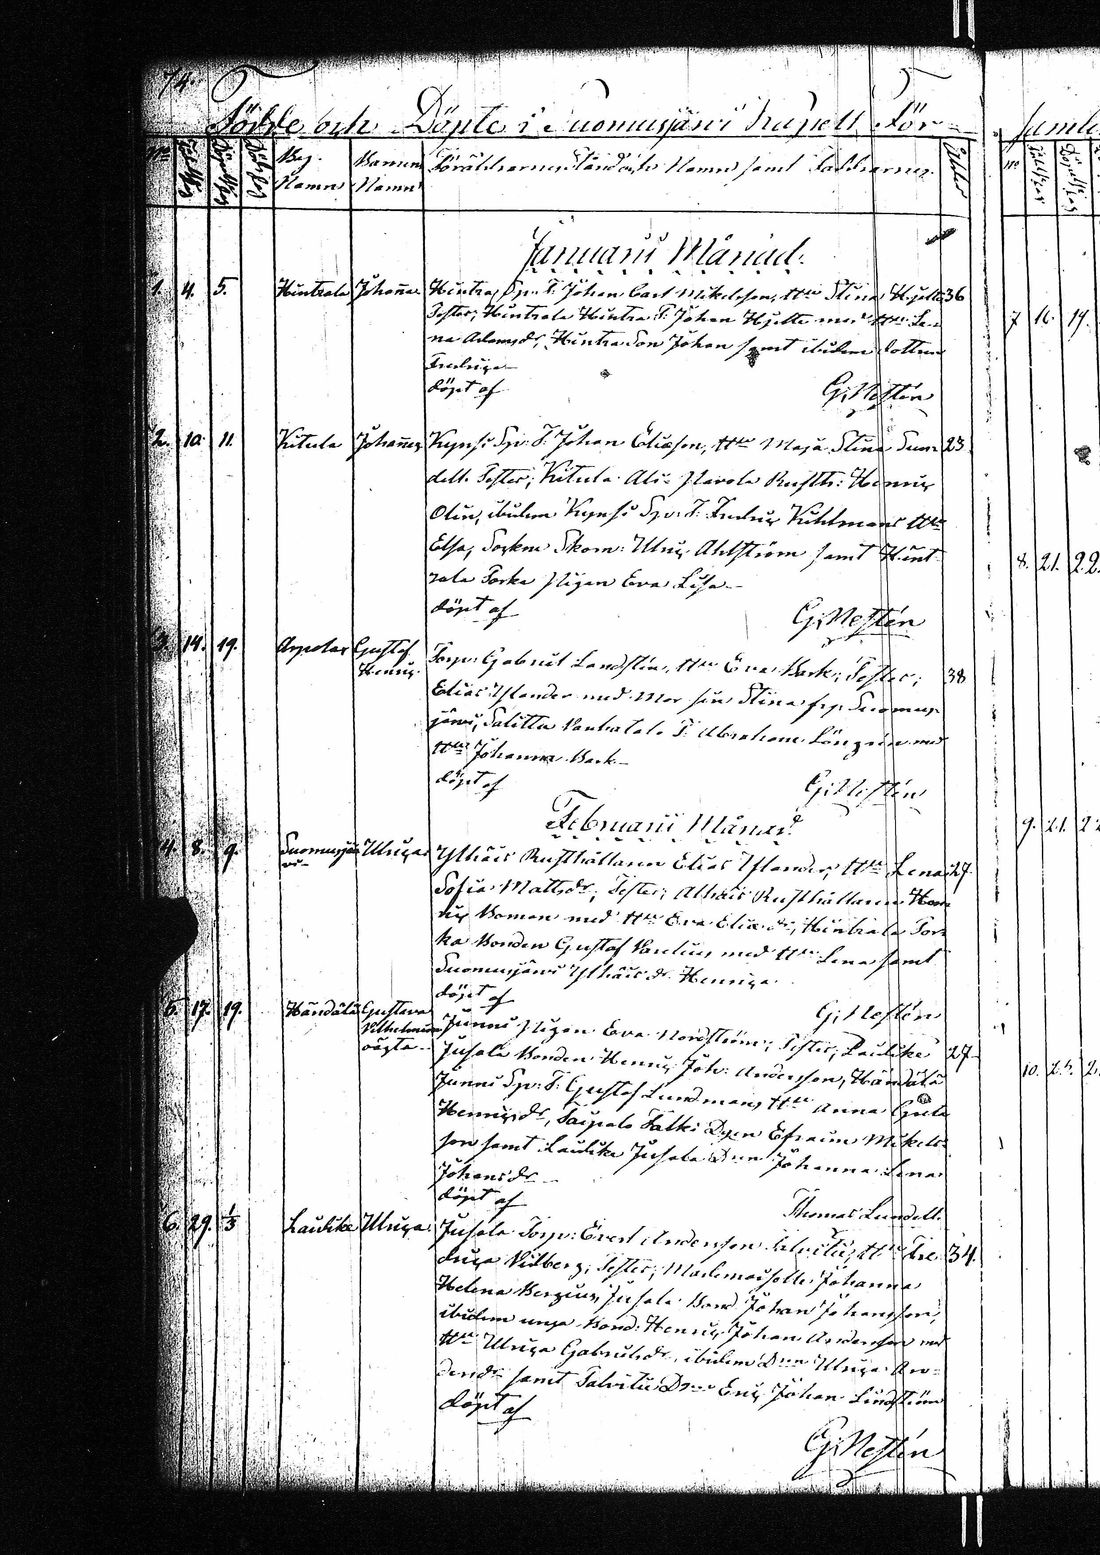 74.
Födde och Döpte i Suomusjärvi Kapell För-
No Födelsedag Döpelsedag Dödsdag By. Namn Barnens Namn Föräldrarnes Stånd och Namn samt Faddrarne. Ålder
Januarii Månad.
1. 4. 5. Hintrala Johanna Hintra Sp: T. Johan Carl Mikelsson, Hu Stina Hjelt 36
Testes; Hintrala Hintra T: Johan Hjelt med Hu Le-
na Adamsdr, Hintra Son Johan samt ibidem dottren
Fredrica
döpt af G: Nestén
2. 10. 11. Kitula Johannes Kynsi Sp: T. Johan Eliasson, Hu Maja Stina Sun- 23.
dell. Testes; Kitula Ali Navola Rusth: Henric
Olin, ibidem Kynsi Sp: T: Fredric Kihlman Hu
Elsa, Sockne Skom: Ulric Ahlström samt Hint-
rala Torka Pigan Eva Lisa
döpt af G: Nestén
3. 14. 19. Arpalax Gustaf Henric Torp: Gabriel Landstén, Hu Eva Back; Testes; 38
Elias Ylander med Mor sin Stina frn Suomus-
järvi, Salittu T: Abraham Lönqvin med
Hu Johanna Back
döpt af G: Nestén
Februarii Månad
4. 8. 9. Suomusjärvi Ulrica Ylhäis Rusthållaren Elias Ylander, Hu Lena 27.
Sofia Mattsdr; Testes; Alhäis Rusthållaren Hen-
ric Boman med Hu Eva Eliædr, Hintrala Tor-
ka Bonden Gustaf med Hu Lena samt
Suomusjärvi Ylhäis dr Henrica
döpt af G: Nestén
5. 17. 19. Händälä Gustava Vilhelmina oägta Junni Pigan Eva Nordström; Testes; Laulike 27.
Jusala Bonden Henric Joh: Andersson, Händälä
Junni Sp: T: Gustaf Lundman, Hu Anna Greta
Henricsdr, Taipale Talki Dgn Efraim Mikels-
son samt Laulike Jusala Johanna Lena
Johansdr
döpt af Thomas Lundell.
6. 29. 1/3 Laulike Ulrica Jusala Torp: Evert Andersson Talvitie, Hu Fre- 34.
drica Vidberg; Testes; Mademoiselle Johanna
Helena Bergius, Jusala Bond Johan Johansson,
ibidem unga Bond: Henric Johan Andersson med
Hu Ulrica Gabrielsdr, ibidem Ulrica
samt Talvitie Eric Johan Lindström
döpt af
G: Nestén
7 16. 19.
8. 21. 22.
9. 21. 22
10. 25.